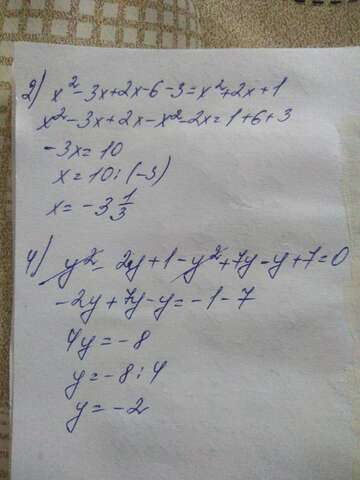 2) x² - 3x + 2x - 6 - 3 = x² + 2x + 1
x² - 3x + 2x - x² - 2x = 1 + 6 + 3
-3x = 10
x = 10 : (-3)
x = -3 1/3
4) y² - 2y + 1 - y² + 7y - y + 7 = 0
-2y + 7y - y = -1 - 7
4y = -8
y = -8 : 4
y = -2